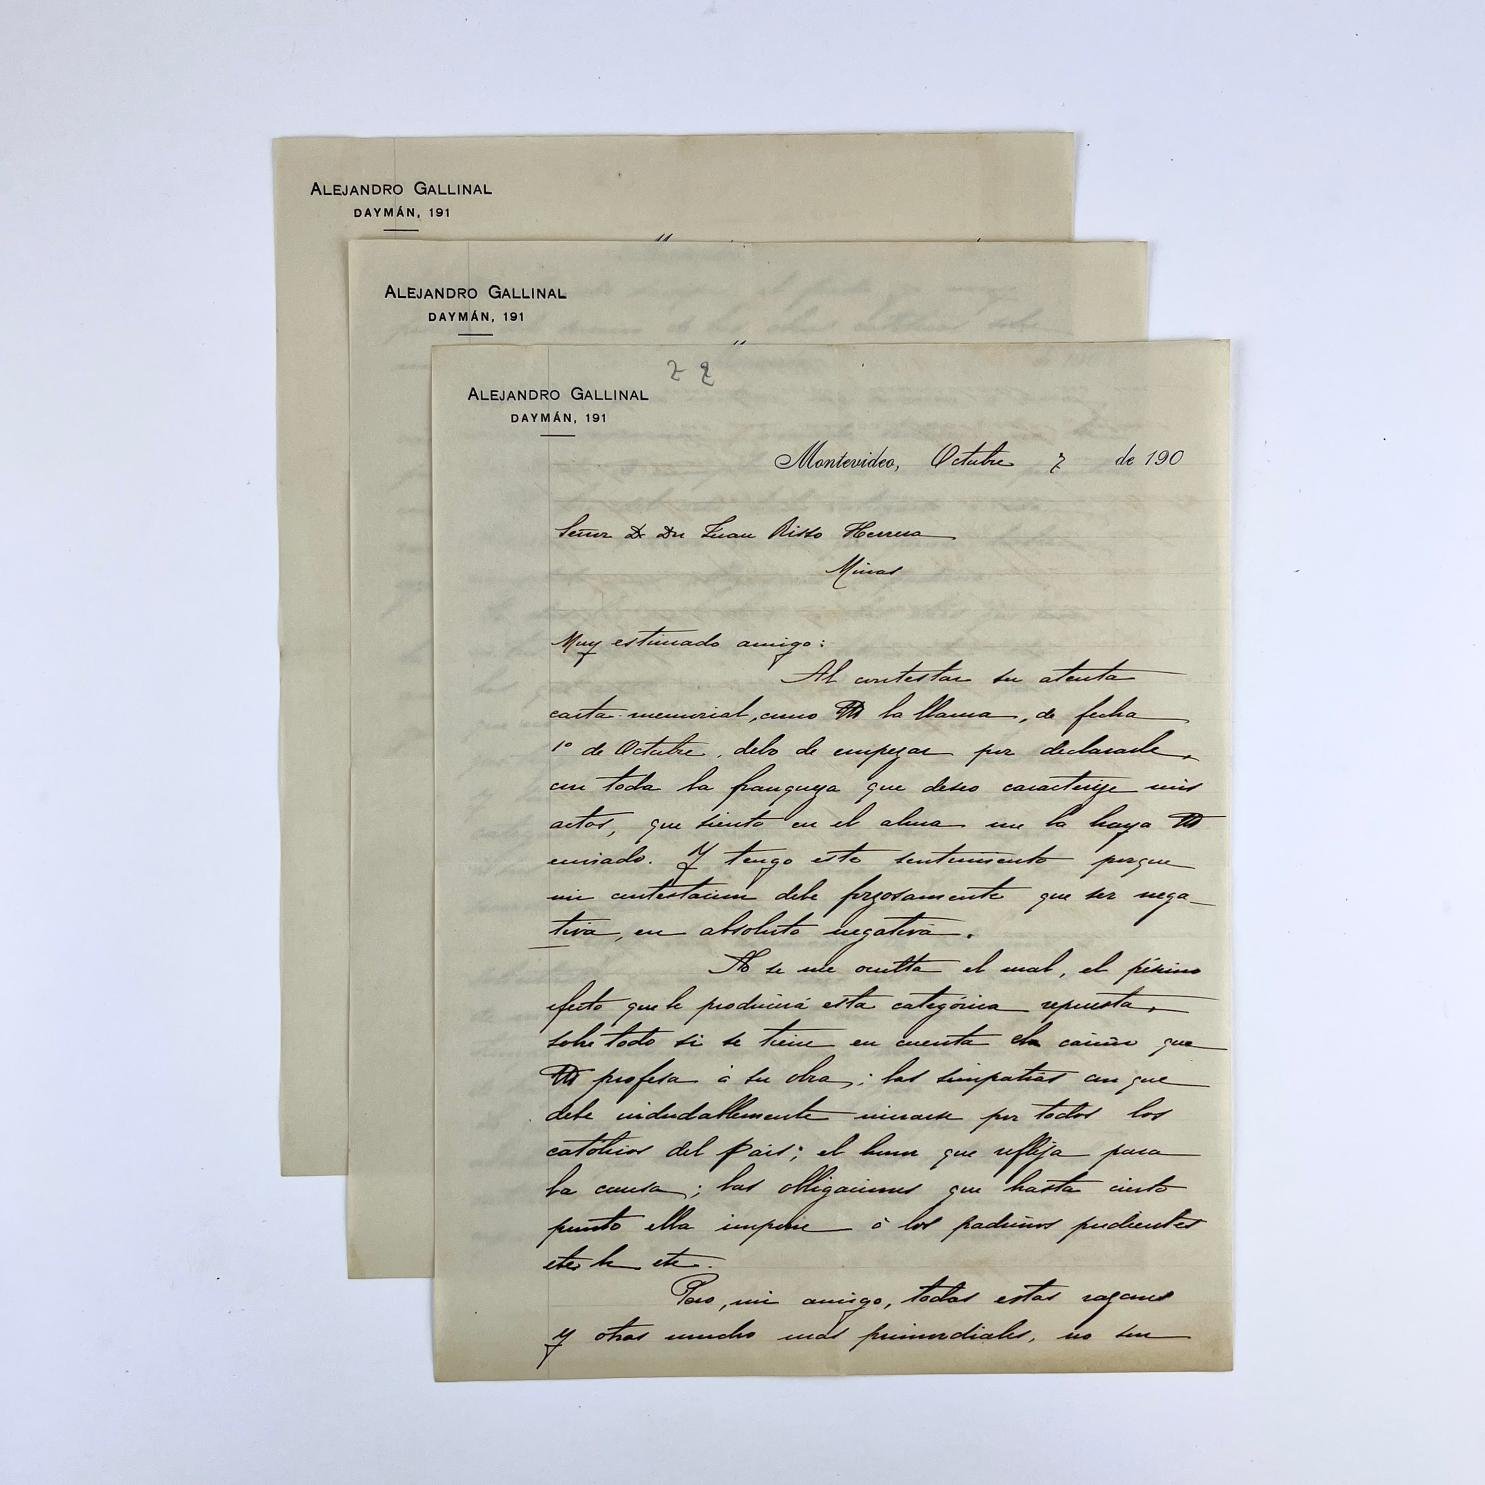 ALEJANDRO GALLINAL
DAYMÁN, 191
ALEJANDRO GALLINAL
DAYMÁN, 191
ALEJANDRO GALLINAL
DAYMÁN, 191
Montevideo, Octubre 7 de 190
Señor D. Dn Juan Risso Herrera
Minas
Muy estimado amigo:
Al contestar su atenta
carta memorial, como Vd la llama, de fecha
1º de Octubre, debo de empezar por declararle,
con toda la franqueza que deseo caracterize mis
actos, que siento en el alma me la haya Vd
enviado. Y tengo este sentimiento porque
mi contestacion debe forzosamente que ser nega-
tiva, en absoluto negativa.
No se me oculta el mal, el pésimo
efecto que le producirá esta categórica repuesta,
sobre todo si se tiene en cuenta el cariño que
Vd profesa á su obra; las simpatías con que
debe indudablemente mirarse por todos los
católicos del Pais; el honor que refleja para
la causa; las obligaciones que hasta cierto
punto ella impone á los padrinos pudientes
etc.
Pero, mi amigo, todas estas razones
y otras mucho mas primordiales, no son